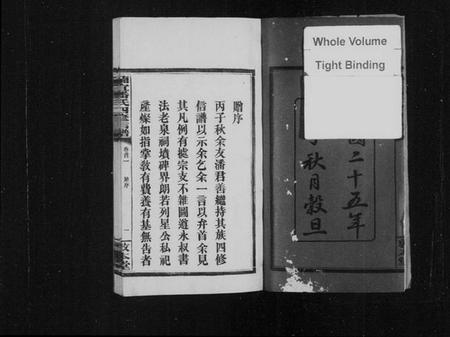 Whole Volume
Tight Binding
國二十五年
秋月穀旦
贈序
丙子秋余友潘君善繼持其族四修
信譜以示余乞余一言以弁首余見
其凡例有據宗支不雜圖遵永叔書
法老泉祠墳碑界朗若列星公私祀
產燦如指掌教有費養有基無告者
卷首一
贈序
一